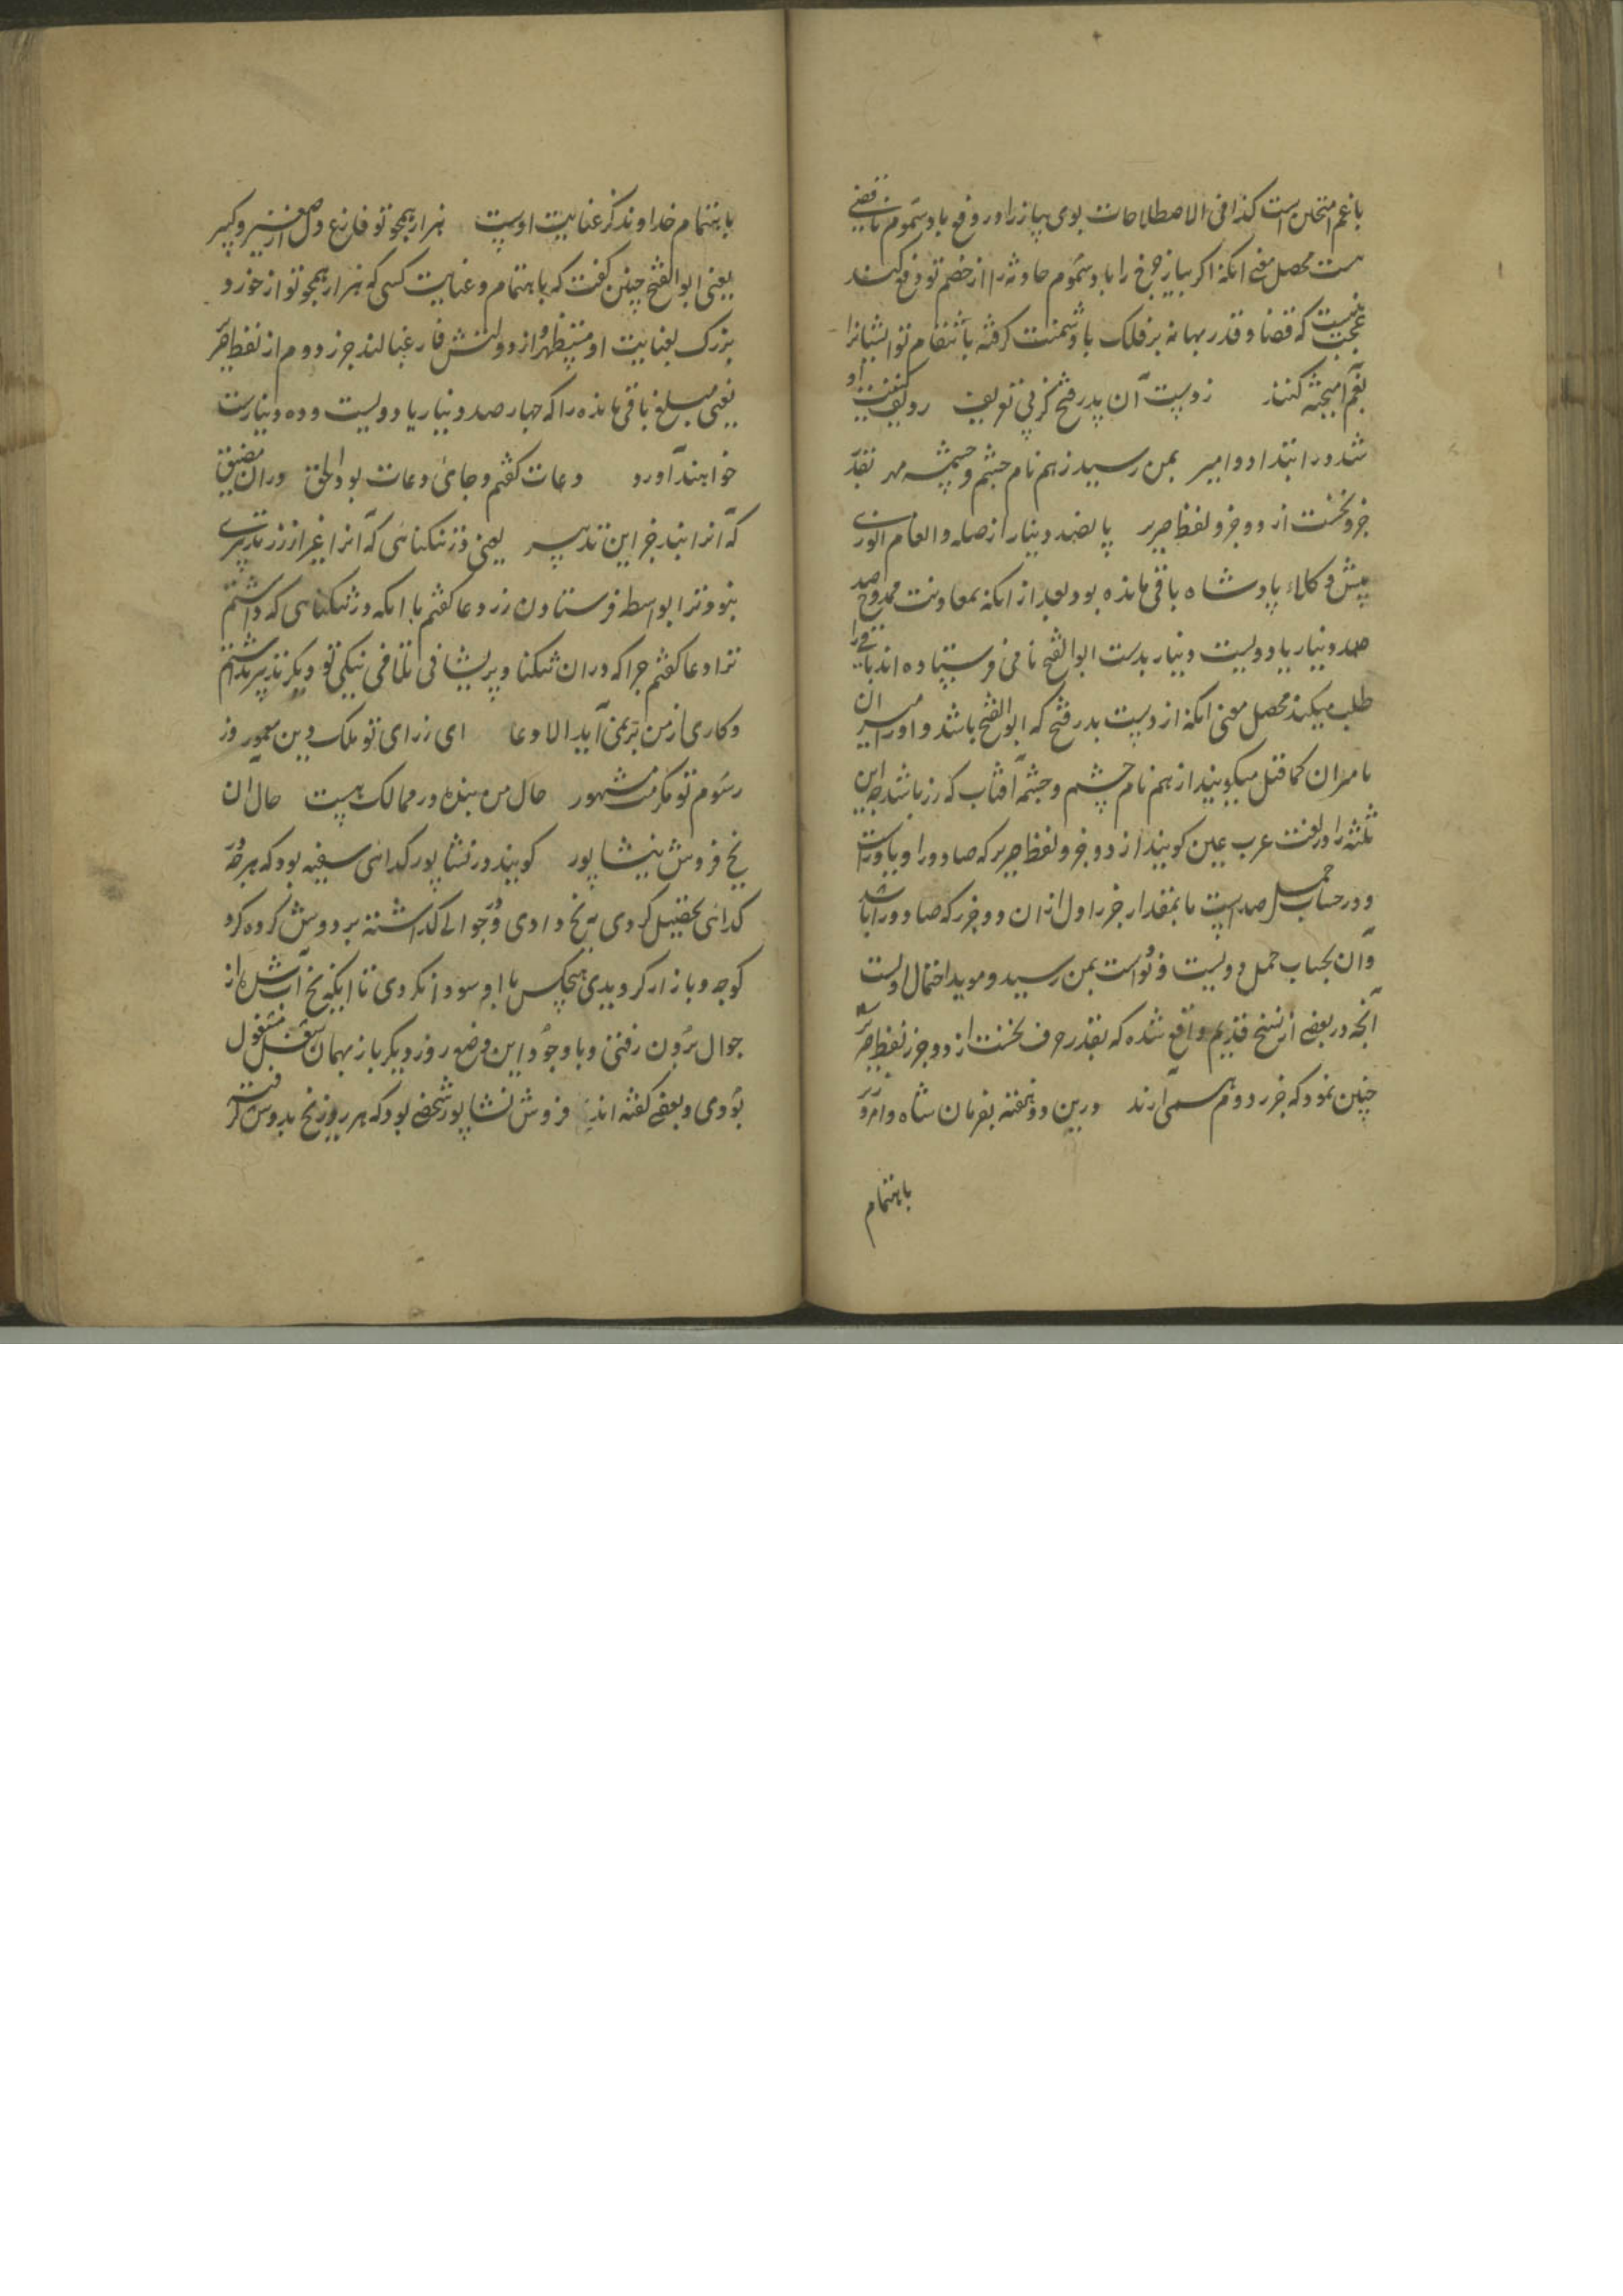 باغم امتحان است کذا فی الاصطلاحات بوی پیاز را در دفع باد سموم نافضیتی
هست محصل معنی انکه اکر پیاز چرخ را باد سموم حادثه را از خصم تو دفع کند
عجب نیست که قضا و قدر بهانه بر فلک با دشمنت کرفته بانتقام تو ایشانرا
بغم آمیخته کنند زدست آن پدر فتح کز پی تعریف ردیف کنیت او
شد در ابتدا دو امیر بمن رسید ز هم نام چشم و چشمه مهر بقدر
جزو نخست از دو جزو لفظ حریر پانصد دینار از صله و انعام انوری
پیش وکلاء پادشاه باقی مانده بود بعد از انکه بمعاونت ممدوح صد
صد دینار یا دویست دینار بدست ابوالفتح نامی فرستاده اند باقی را
طلب میکند محصل معنی انکه از دست پدر فتح که ابوالفتح باشد و او را میران
میران کما قیل میکویند از هم نام چشم و چشمه آفتاب که زر باشد چه این
ثلثه را در لغت عرب عین کویند از دو جزو لفظ حریر که صاد و را و یا و راست
و در حساب جمل صد است یا بمقدار جزر اول ازان دو جزر که صاد و را باشد
و آن بحساب جمل دویست و نود است بمن رسید و موید احتمال اولست
آنچه در بعضی از نسخ قدیم واقع شده که بقدر حرف نخست از دو جزر لفظ حریر
چنین نمود که جزر دوم همی آرند درین دو هفته بفرمان شاه و امر وزیر
باهتمام
باهتمام خداوند کز عنایت اوست هزار همچو تو فارغ دل از صغیر و کبیر
یعنی ابوالفتح چنین کفت که باهتمام و عنایت کسی که هزار همچو تو از خورد و
بزرک بعنایت او مستظهر و از دولتش فارغ بالند جزر دوم از لفظ حریر
یعنی مبلغ باقی مانده را که چهار صد دینار یا دویست و ده دینارست
خواهند آورد دعات کفتم و جای دعات بود الحق دران مضیق
که آنرا نبد جز این تدبیر یعنی در تنکنائی که آنرا غیر از زر تدبیری
نبود ترا بواسطه فرستادن زر دعا کفتم با انکه در تنکنائی که داشتم
ترا دعا کفتم چرا که دران تنکنا و پریشانی تلافی نیکی تو دیکر تدبیر نداشتم
و کاری از من بر نمی آید الا دعا ای ز رای تو ملک و دین معمور وز
رسوم تو مکرمت مشهور حال من بنده در ممالک هست حال ان
یخ فروش نیشاپور کویند در نشاپور کدائی سفیه بود که هر چه از
کدائی تحصیل کردی به یخ دادی و در جوالی کذاشته بر دوش کرده کرد
کوچه و بازار کردیدی هیچکس با او سودا نکردی تا انکه یخ آب شده از
جوال برون رفتی و با وجود این وضع روز دیکر باز بهمان شغل مشغول
بودی و بعضی کفته اند فروش نشاپور شخصی بود که هر روز یخ بدوش کرفته